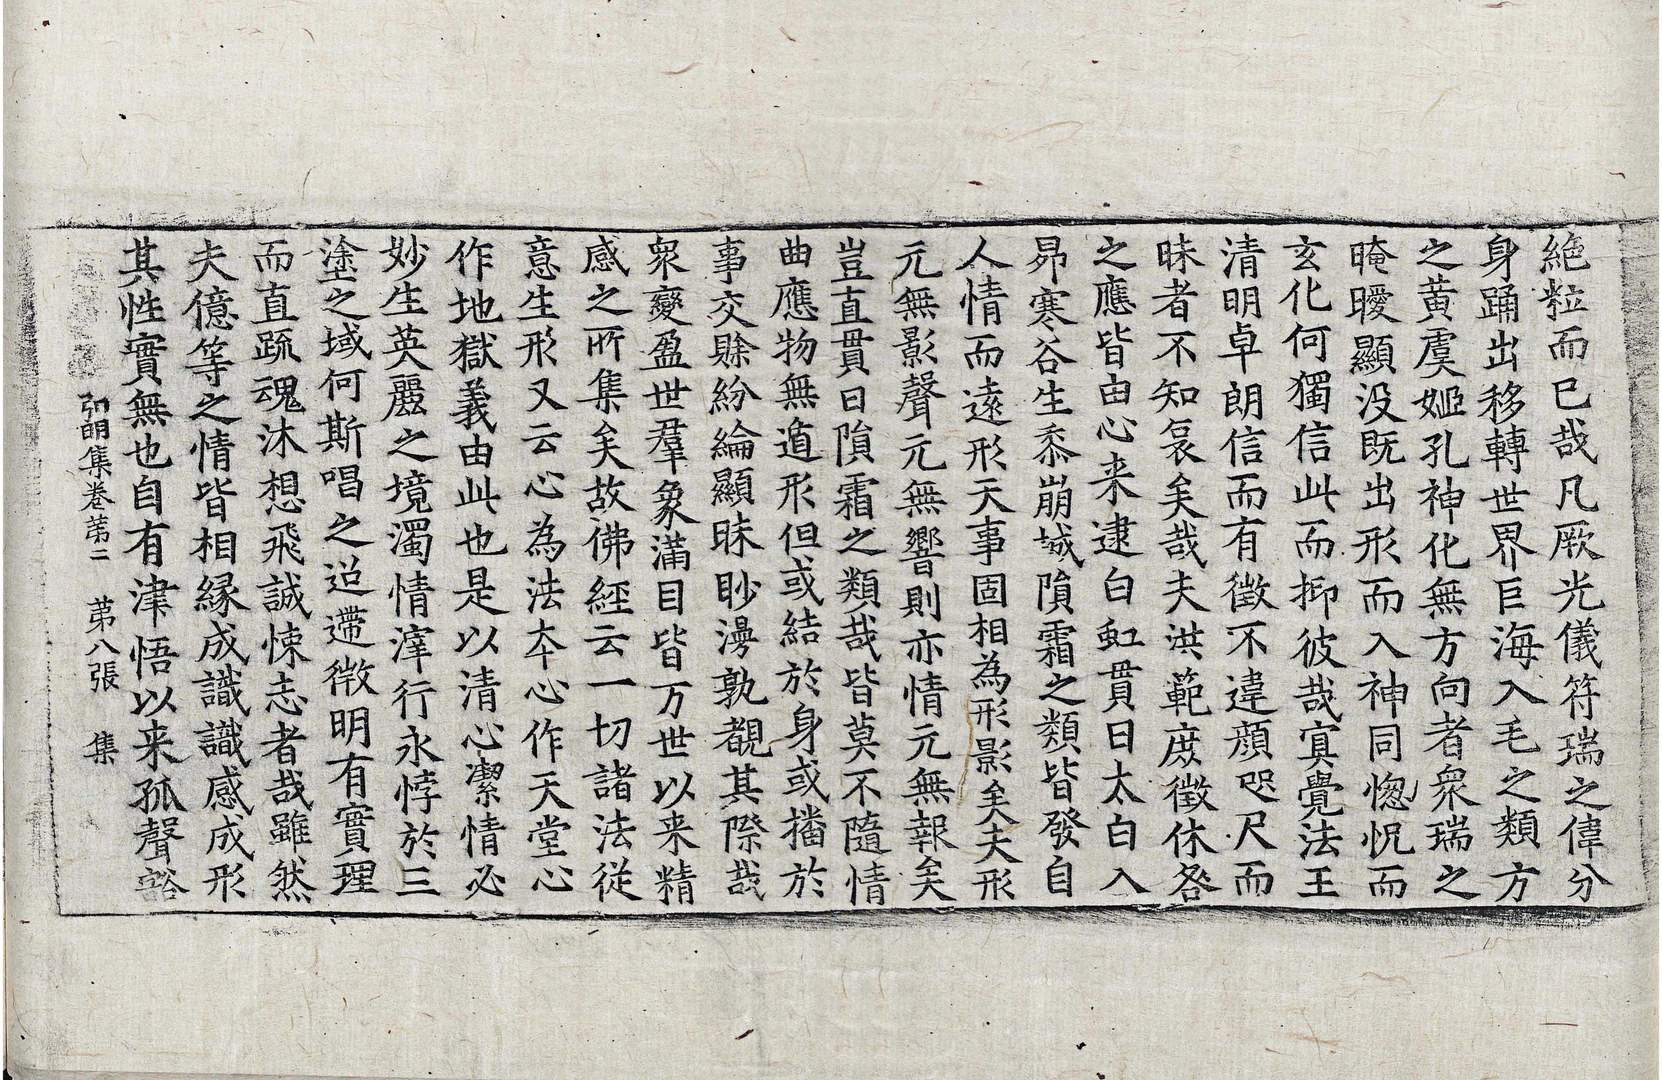 絶粒而已哉凡厥光儀符瑞之偉分
身踊出移轉世界巨海入毛之類方
之黃虞姬孔神化無方向者衆瑞之
晻曖顯没既出形而入神同惚怳而
玄化何獨信此而抑彼哉寘覺法王
清明卓朗信而有徵不違顔咫尺而
昧者不知哀矣哉夫洪範庶徵休咎
之應皆由心来逮白虹貫日太白入
昴寒谷生黍崩城隕霜之類皆發自
人情而遠形天事固相為形影矣夫形
元無影聲元無響則亦情元無報矣
豈直貫日隕霜之類哉皆莫不隨情
曲應物無遁形但或結於身或播於
事交賖紛綸顯昧眇漫孰覩其際哉
衆變盈世羣象滿目皆万世以来精
感之所集矣故佛經云一切諸法從
意生形又云心為法夲心作天堂心
作地獄義由此也是以清心潔情必
妙生英麗之境濁情滓行永悖於三
塗之域何斯唱之迢遰微明有實理
而直疏魂沐想飛誠悚志者哉雖然
夫億等之情皆相縁成識識感成形
其性實無也自有津悟以来孤聲豁
弘明集卷苐二　苐八張　集